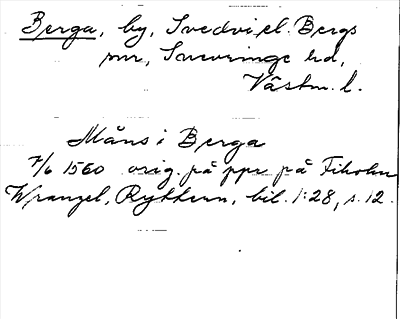 Berga, by, Svedvi el. Bergs
snr, Snevringe hd,
Västm. l.
Måns i Berga
7/6 1560 orig. på ppr på Fiholm
Wrangel, Ryttern, bil. 1:28, s. 12.